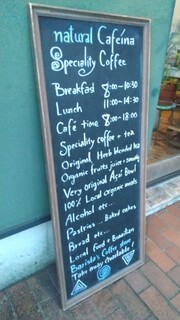 natural Cafeína
Speciality Coffee
Breakfast 8:00~10:30
Lunch 11:00~14:30
Café time 8:00~18:00
Speciality coffee + tea
Original Herb blended tea
Organic fruits juice + smoothy
Very original Açaí Bowl
100% Local organic meals
Alcohol etc...
Pastries... Baked cakes
Bread etc...
Local food + Brazilian
Barista's Coffee
Take Away available